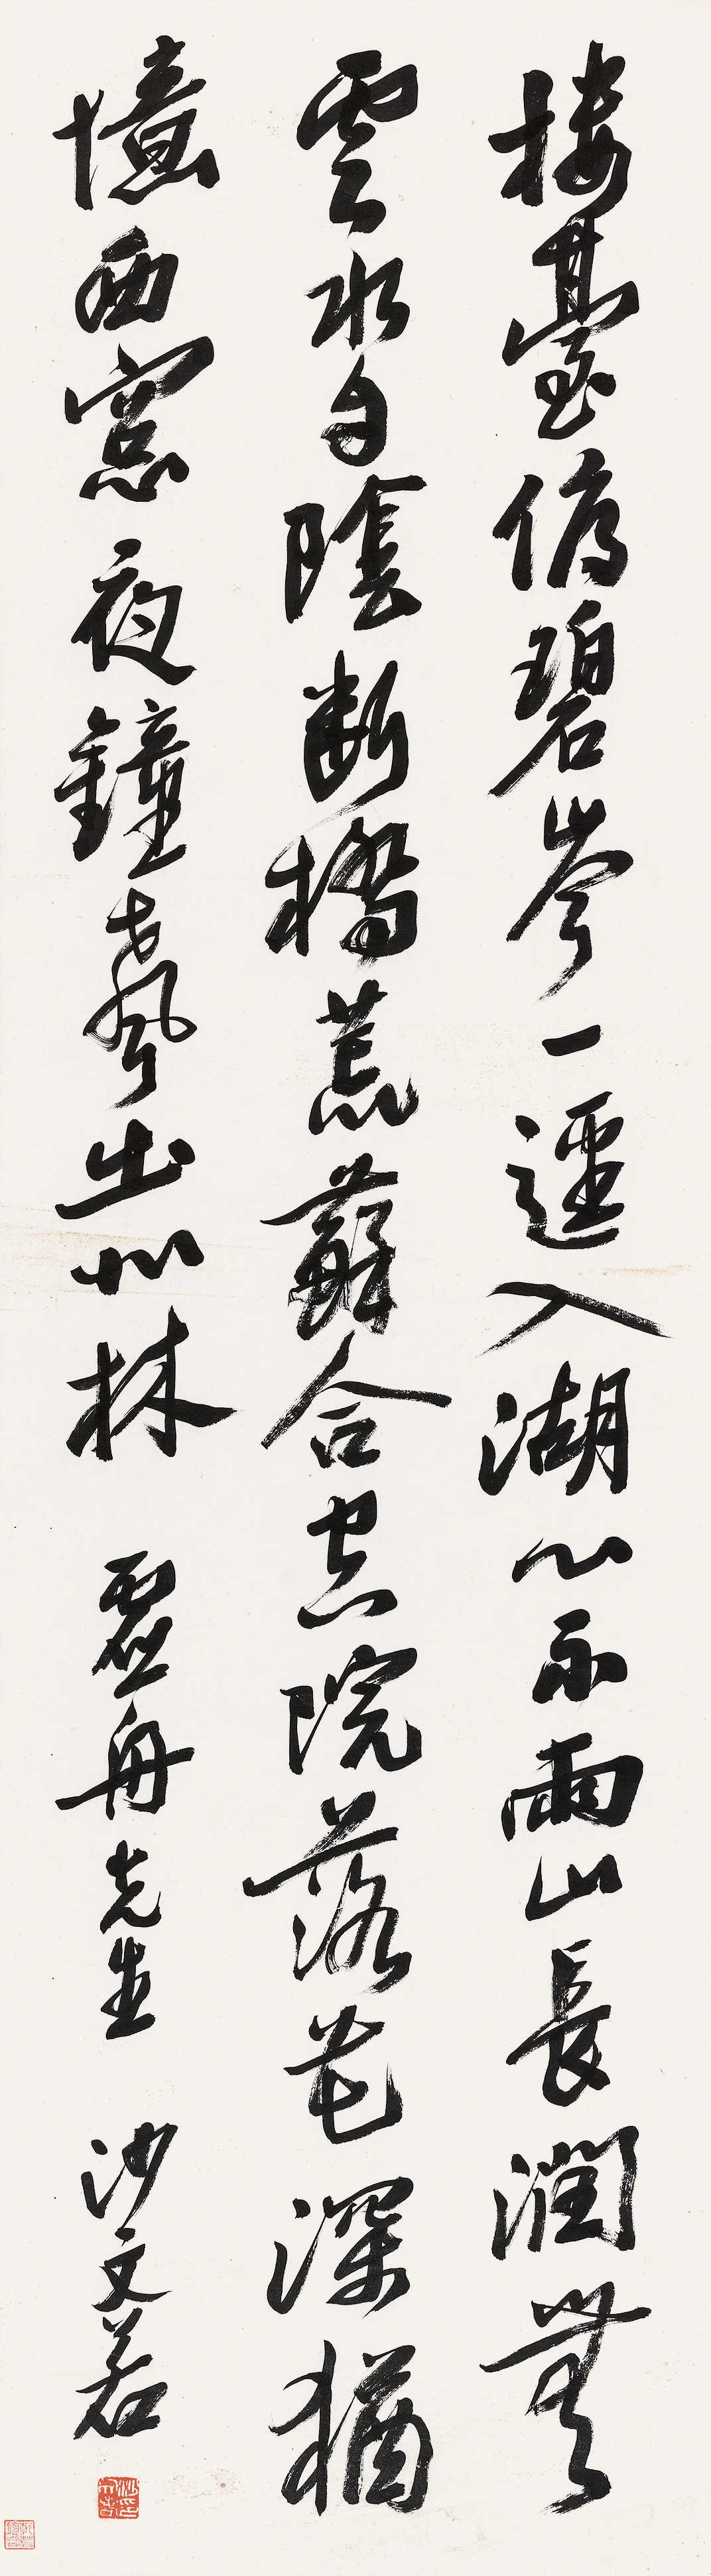 樓臺碧岑一逕入湖心不雨山長潤無
雲水自陰断橋荒蘚合空院落花深猶
憶西窓夜鐘聲出北林 虛舟先生 沙文若